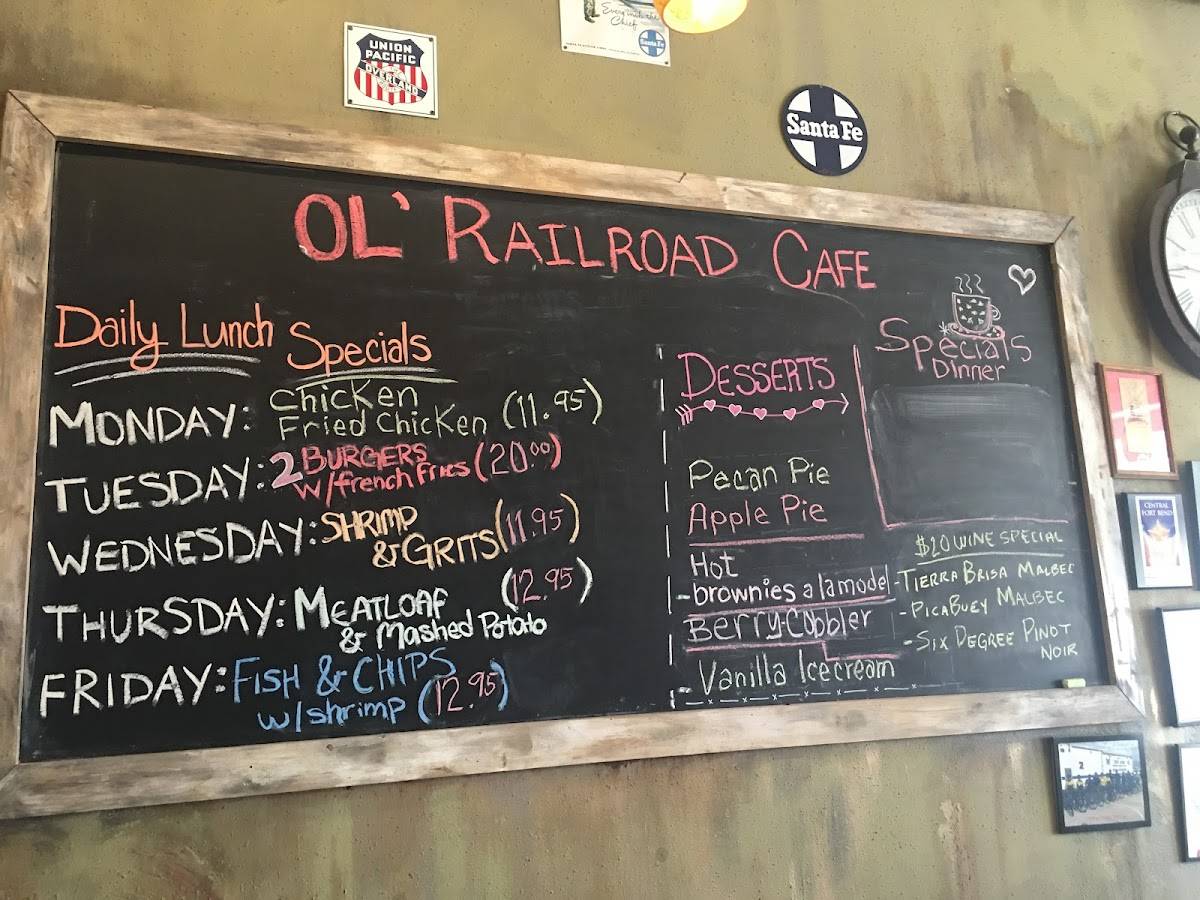 UNION
PACIFIC
OVERLAND
Every with the
Chief
Santa Fe
Santa Fe
OL' RAILROAD CAFE
Daily Lunch Specials
MONDAY: Chicken
Fried Chicken (11.95)
TUESDAY: 2 BURGERS
w/french fries (20.00)
WEDNESDAY: SHRIMP
& GRITS (11.95)
THURSDAY: MEATLOAF
& Mashed Potato (12.95)
FRIDAY: FISH & CHIPS
w/shrimp (12.95)
DESSERTS
Pecan Pie
Apple Pie
Hot
-brownies a la mode
Berry Cobbler
- Vanilla Icecream
Specials
Dinner
$20 WINE SPECIAL
-TIERRA BRISA MALBEC
-PICABUEY MALBEC
-SIX DEGREE PINOT
NOIR
CENTRAL
FORT BEND